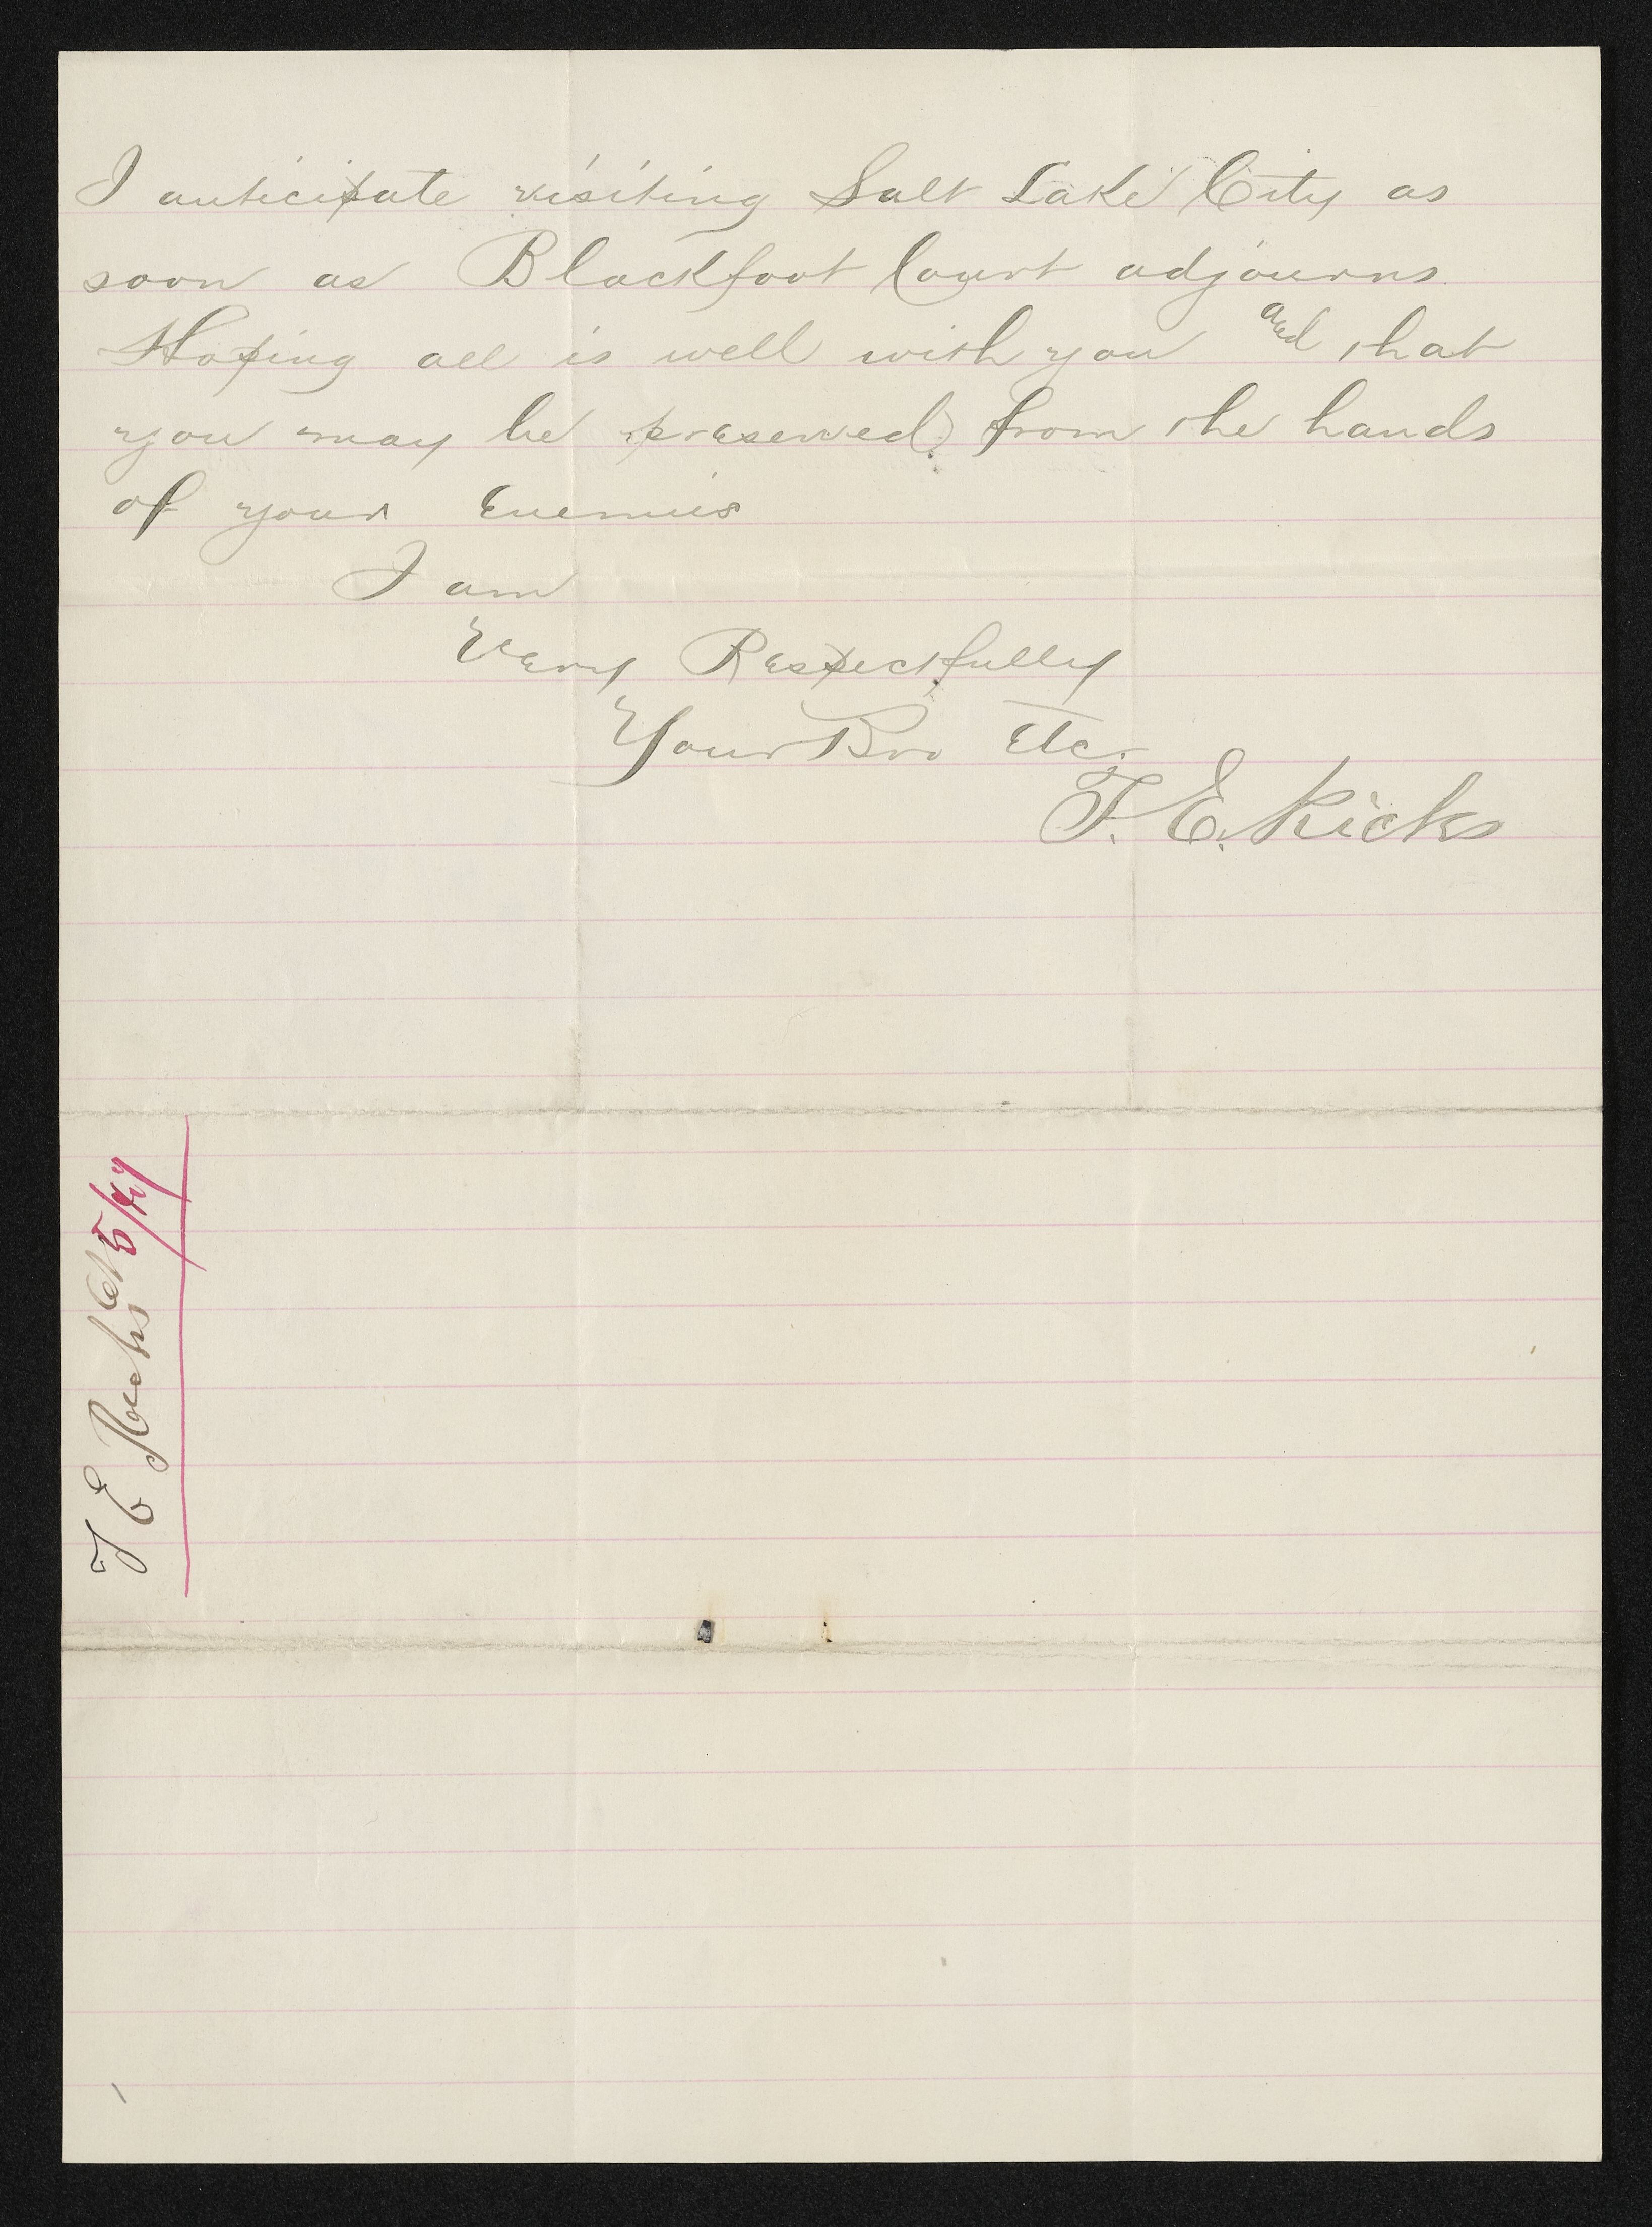 I anticipate visiting Salt Lake City as
soon as Blackfoot Court adjourns
Hoping all is well with you and that
you may be preserved from the hands
of your Enemies
I am
Very Respectfully
Your Bro Etc.
T. E. Ricks
T E Ricks